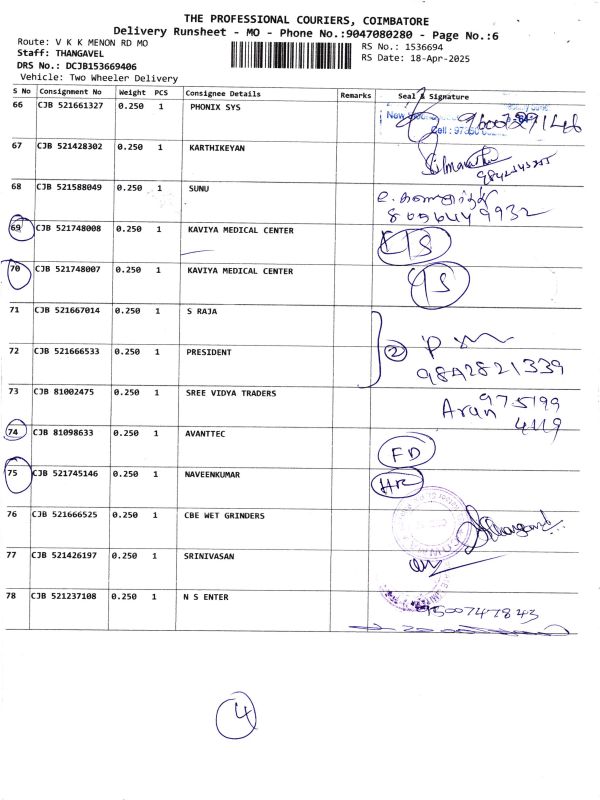 THE PROFESSIONAL COURIERS, COIMBATORE
Delivery Runsheet - MO - Phone No.:9047080280 - Page No.:6
Route: V K K MENON RD MO
Staff: THANGAVEL
DRS No.: DCJB153669406
Vehicle: Two Wheeler Delivery
RS No.: 1536694
RS Date: 18-Apr-2025
S No Consignment No Weight PCS Consignee Details Remarks Seal & Signature
66 CJB 521661327 0.250 1 PHONIX SYS
67 CJB 521428302 0.250 1 KARTHIKEYAN
68 CJB 521588049 0.250 1 SUNU
8056449932
69 CJB 521748008 0.250 1 KAVIYA MEDICAL CENTER
70 CJB 521748007 0.250 1 KAVIYA MEDICAL CENTER
71 CJB 521667014 0.250 1 S RAJA
72 CJB 521666533 0.250 1 PRESIDENT 2
9842821339
73 CJB 81002475 0.250 1 SREE VIDYA TRADERS Arun 975199
4119
74 CJB 81098633 0.250 1 AVANTTEC FD
75 CJB 521745146 0.250 1 NAVEENKUMAR HR
76 CJB 521666525 0.250 1 CBE WET GRINDERS
77 CJB 521426197 0.250 1 SRINIVASAN
78 CJB 521237108 0.250 1 N S ENTER 9500747843
4